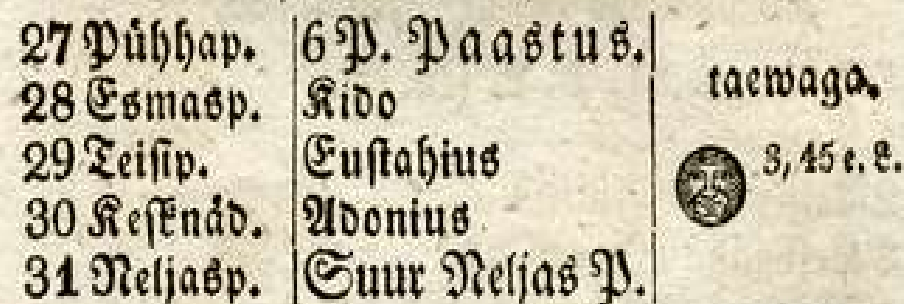 27 Pühhap. 6 P. Paastus.
taewaga.
28 Esmasp. Kido
29 Teisip. Eustahius
3, 45 e. L.
30 Kesknäd. Adonius
31 Neljasp. Suur Neljas P.